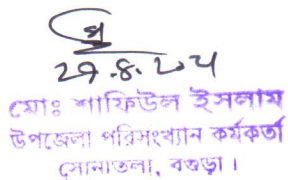 মোঃ শাফিউল ইসলাম
উপজেলা পরিসংখ্যান কর্মকর্তা
সোনাতলা, বগুড়া।